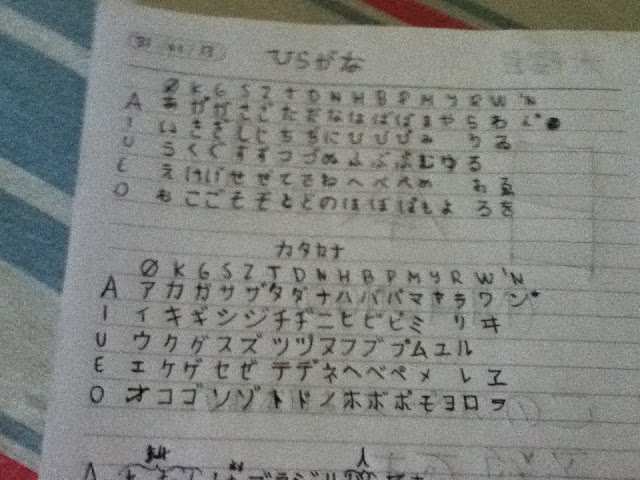 ひらがな
Ø K G S Z T D N H B P M Y R W 'N
A あ か が さ ざ た だ な は ば ぱ ま や ら わ ん
I い き ぎ し じ ち ぢ に ひ び ぴ み り ゐ
U う く ぐ す ず つ づ ぬ ふ ぶ ぷ む ゆ る
E え け げ せ ぜ て で ね へ べ ぺ め れ ゑ
O お こ ご そ ぞ と ど の ほ ぼ ぽ も よ ろ を
カタカナ
Ø K G S Z T D N H B P M Y R W 'N
A ア カ ガ サ ザ タ ダ ナ ハ バ パ マ ヤ ラ ワ ン
I イ キ ギ シ ジ チ ヂ ニ ヒ ビ ピ ミ リ ヰ
U ウ ク グ ス ズ ツ ヅ ヌ フ ブ プ ム ユ ル
E エ ケ ゲ セ ゼ テ デ ネ ヘ ベ ペ メ レ ヱ
O オ コ ゴ ソ ゾ ト ド ノ ホ ボ ポ モ ヨ ロ ヲ
人
ブラジル